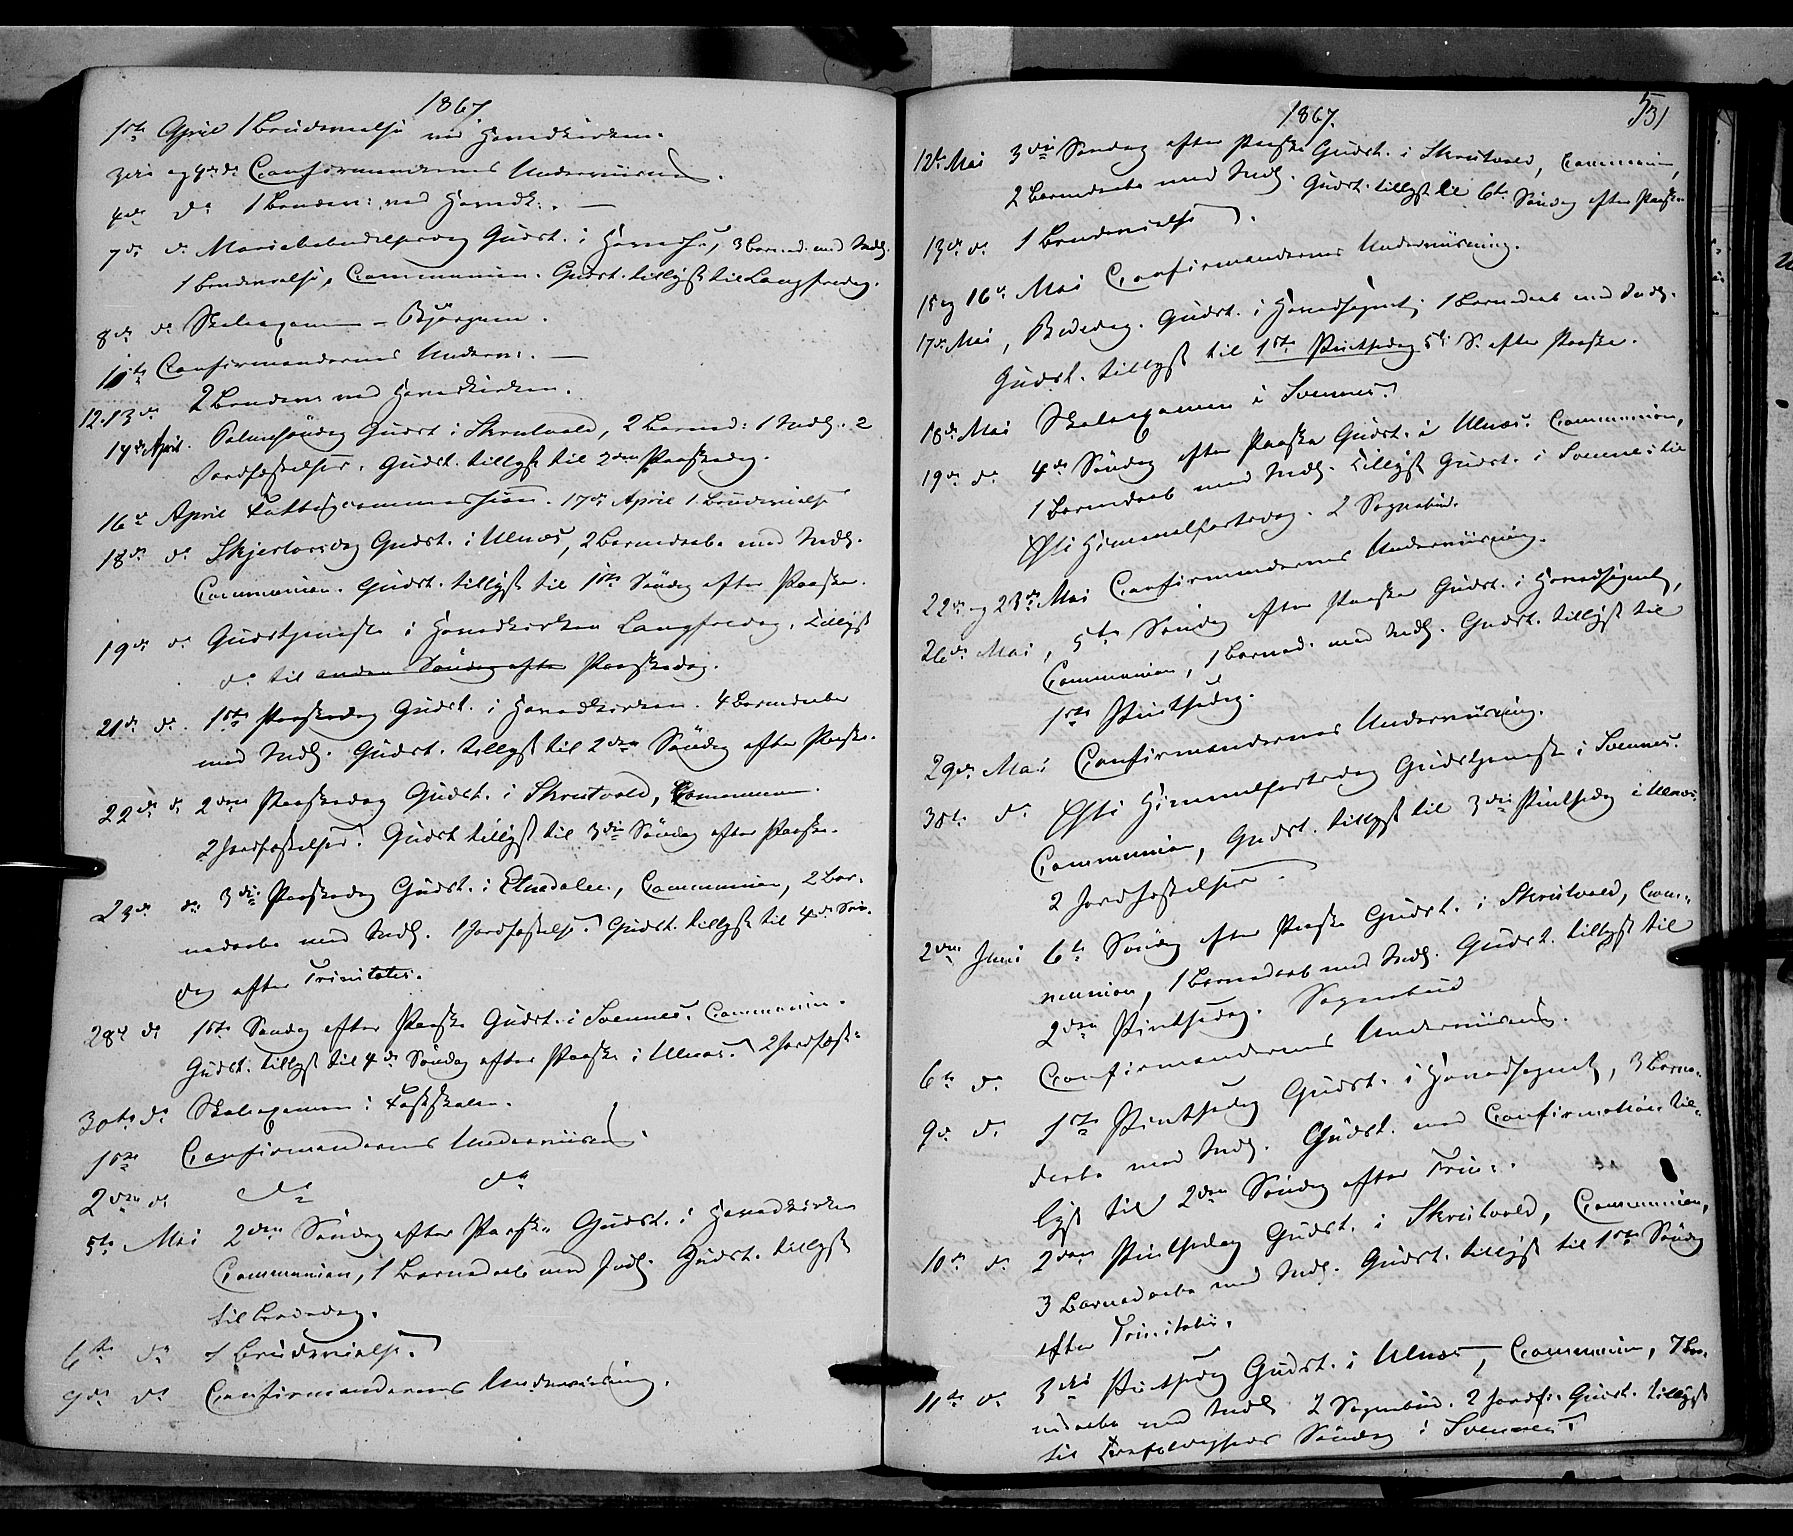 1867.
1ste April 1 Brudevielse ved Hovedkirken.
3die og 4de Confirmandernes Underviisning.
4de do 1 Brudev: ved Hovedk:. —
7de do Mariebebudelsesdag Gudst. i Hoveds., 3 Barned. med Indl.
1 Brudevielse, Communion. Gudst. tillyst til Langfredag.
8de do Skoleexamen — Bjørgum.
10te Confirmandernes Underv:. —
12. 13de 2 Brudev. ved Hovedkirken.
14de April. Palmesøndag Gudst i Skrutvold, 2 Barned: 1 Indl. 2
Jordfæstelser. Gudst. tillyst til 2den Paaskedag.
16de April Fattigcommission. 17de April 1 Brudevielse
18de do Skjertorsdag Gudst. i Ulnæs, 2 Barnedaabe med Indl.
Communion. Gudst. tillyst til 1ste Søndag efter Paaske.
19de do Gudstjeneste i Hovedkirken Langfredag. Tillyst
do til anden Søndag efter Paaskedag.
21de do. 1ste Paaskedag Gudst. i Hovedkirken. 4 Barnedaabe
med Indl. Gudst. tillyst til 2den Søndag efter Paaske.
22de do 2den Paaskedag Gudst. i Skrutvold, Communion.
2 Jordfæstelser. Gudst tillyst til 3die Søndag efter Paaske.
23de do 3die Paaskedag Gudst. i Etnedalen, Communion, 2 Bar-
nedaabe med Indl. 1 Jordfæstelse. Gudst. tillyst til 4de Søn-
dag efter Trinitatis.
28de do 1ste Søndag efter Paaske Gudst. i Svennes. Communion.
Gudst. tillyst til 4de Søndag efter Paaske i Ulnæs. 2 Jordfæst-
30te do Skoleexamen i Fastskolen.
1ste Confirmandernes Underviisning.
2den do do do
5te Mai 2den Søndag efter Paaske Gudst. i Hovedkirken
Communion, 1 Barnedaab med Indl. Gudst. tillyst
til Bededag.
6te do 1 Brudevielse.
9de do Confirmandernes Underviisning.
1867.
531
12te Mai 3die Søndag efter Paaske Gudst. i Skrutvold, Communion,
2 Barnedaabe med Indl. Gudst. tillyst til 6te Søndag efter Paaske
13de do. 1 Brudevielse.
15 og 16de Mai Confirmandernes Underviisning.
17de Mai, Bededag. Gudst. i Hovedsognet, 1 Barnedaab med Indl.
Gudst. tillyst til 1ste Pintsedag 5te S. efter Paaske.
18de Mai Skoleexamen i Svennes.
19de do 4de Søndag efter Paaske Gudst. i Ulnæs. Communion,
1 Barnedaab med Indl. Tillyst Gudst. i Svennes til
Christi Himmelfartsdag. 2 Sognebud.
22de og 23de Mai Confirmandernes Underviisning.
26de Mai, 5te Søndag efter Paaske Gudst. i Hovedsognet,
Communion, 1 Barned. med Indl. Gudst. tillyst til
1ste Pintsedag.
29de Mai Confirmandernes Underviisning.
30te do Christi Himmelfartsdag Gudstjeneste i Svennes.
Communion, Gudst. tillyst til 3die Pintsedag i Ulnæs.
2 Jordfæstelser.
2den Juni 6te Søndag efter Paaske Gudst. i Skrutvold, Com-
munion, 1 Barnedaab med Indl. Gudst. tillyst til
2den Pintsedag. Sognebud
6te do Confirmandernes Underviisning.
9de do 1ste Pintsedag Gudst. i Hovedsognet, 3 Barne-
daabe med Indl. Gudst. med Confirmation til-
lyst til 2den Søndag efter Trin:.
10de do 2den Pintsedag Gudst. i Skrutvold, Communion,
3 Barnedaabe med Indl. Gudst. tillyst til 1ste Søndag
efter Trinitatis.
11te do 3die Pintsedag Gudst. i Ulnæs, Communion, 7 Bar-
nedaabe med Indl. 2 Sognebud. 2 Jordf. Gudst. tillyst
til Trefoldigheds Søndag i Svennes.